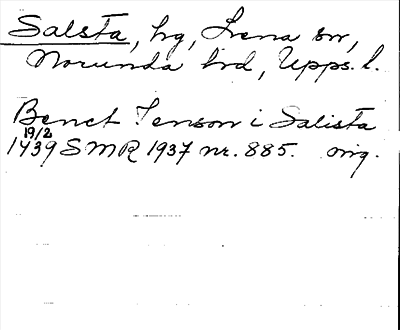 Salsta, hg, Lena sn,
Norunda hrd, Upps. l.
Benct Jenson i Salista
19/2
1439 SMR 1937 nr. 885. orig.